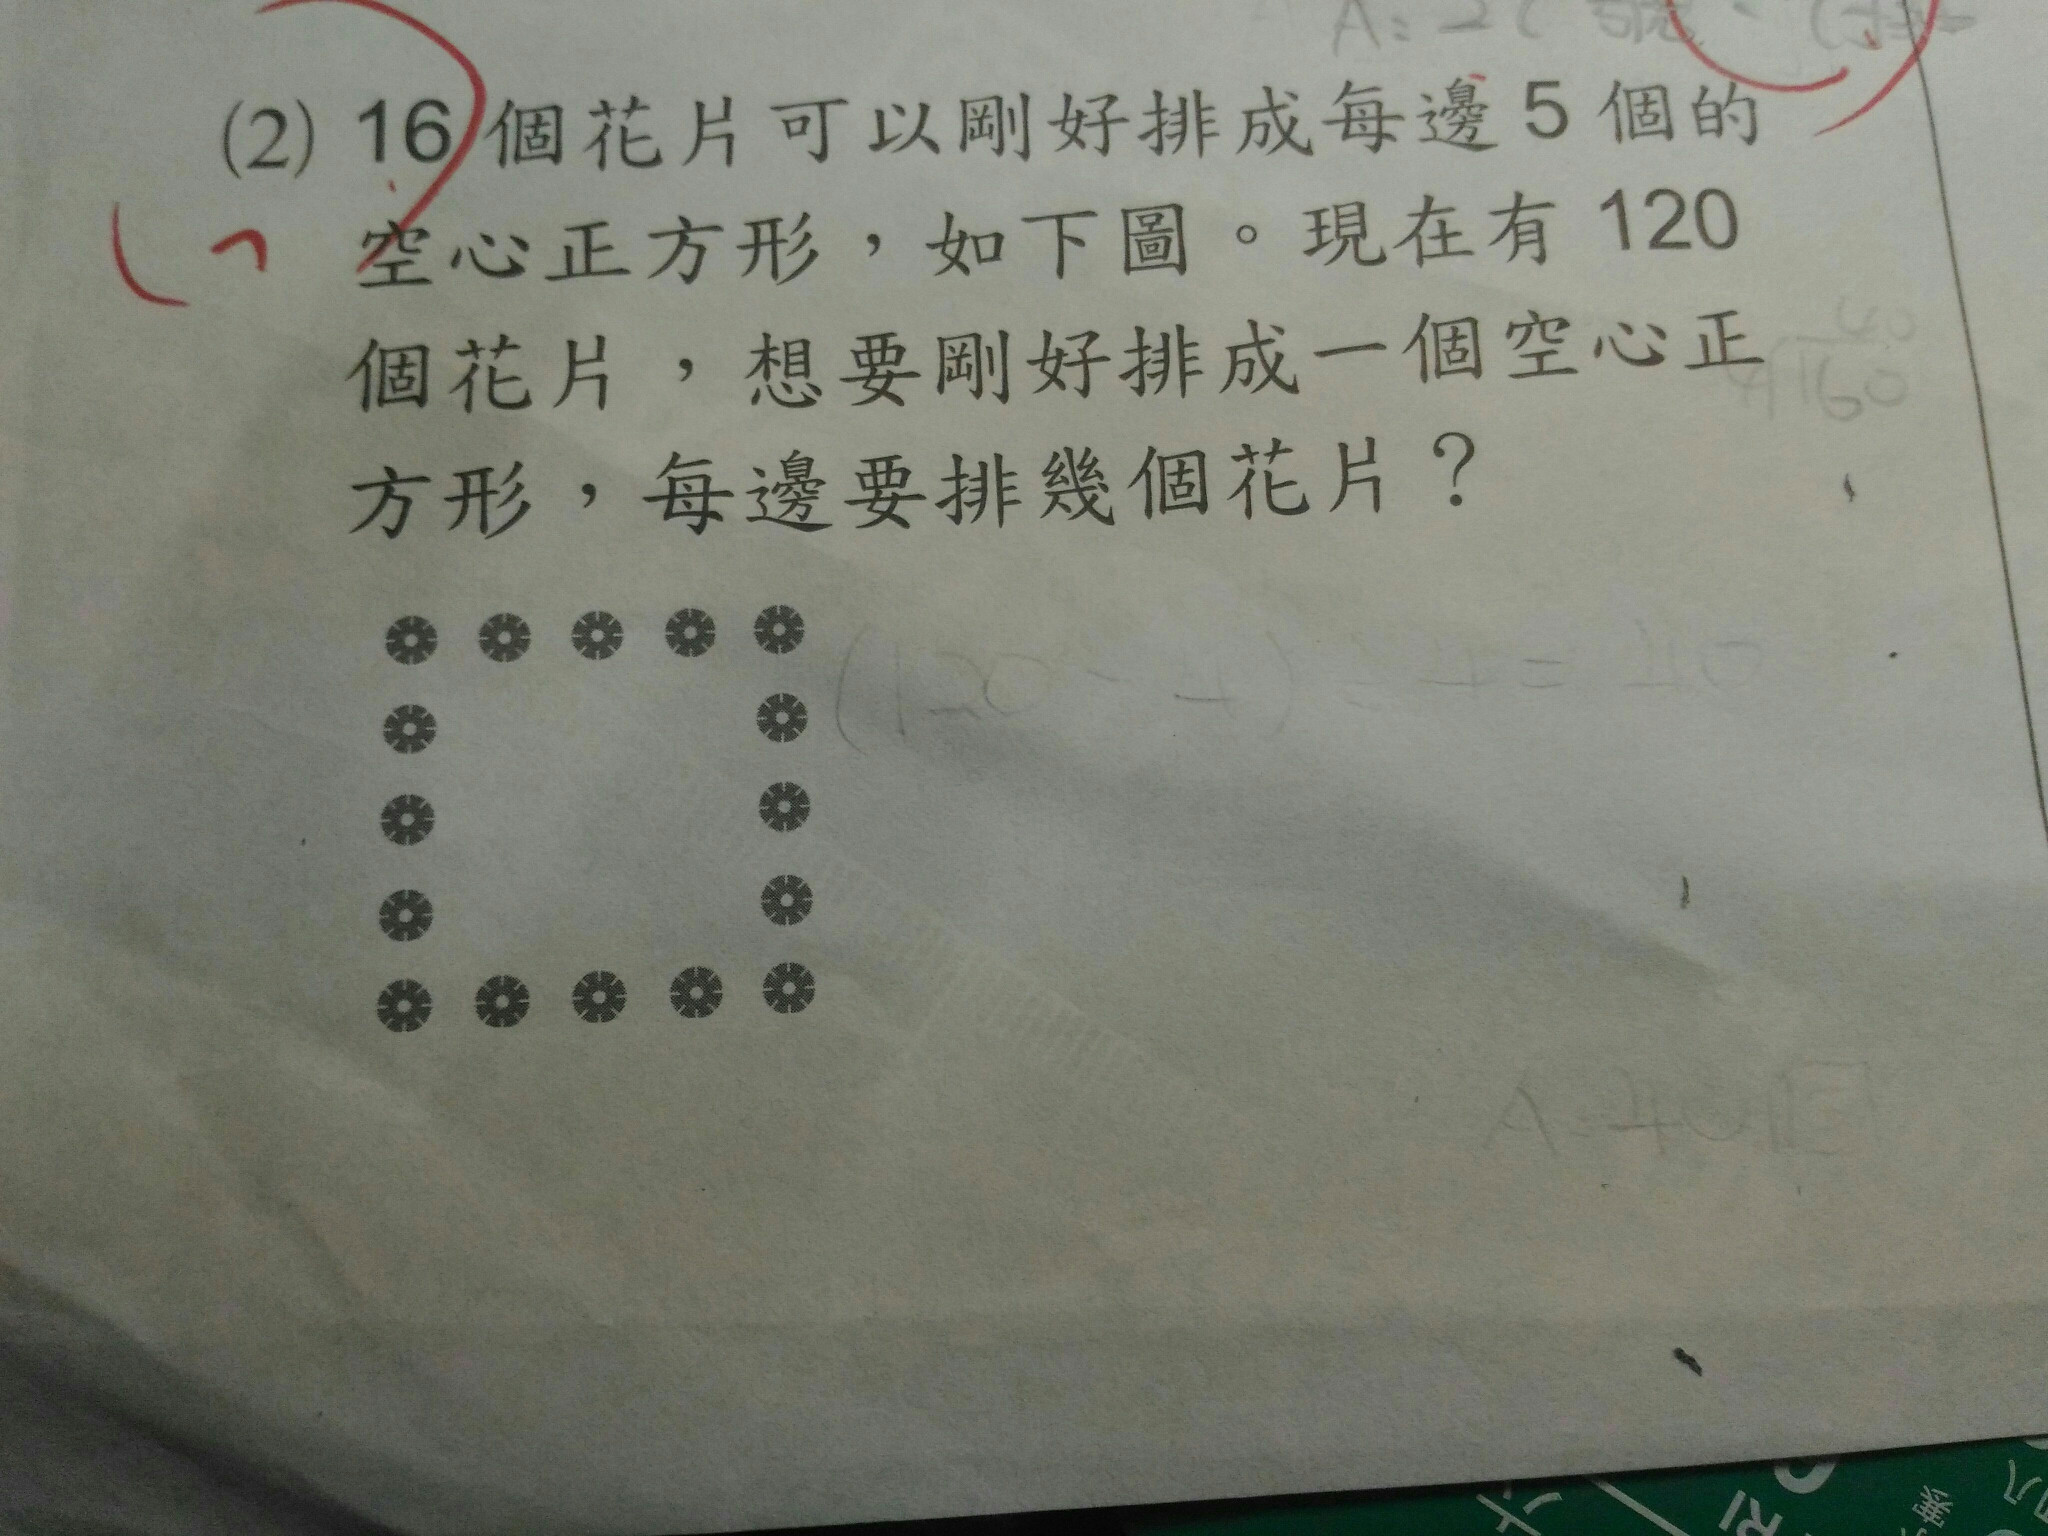 (2) 16個花片可以剛好排成每邊5個的
空心正方形，如下圖。現在有120
個花片，想要剛好排成一個空心正
方形，每邊要排幾個花片？